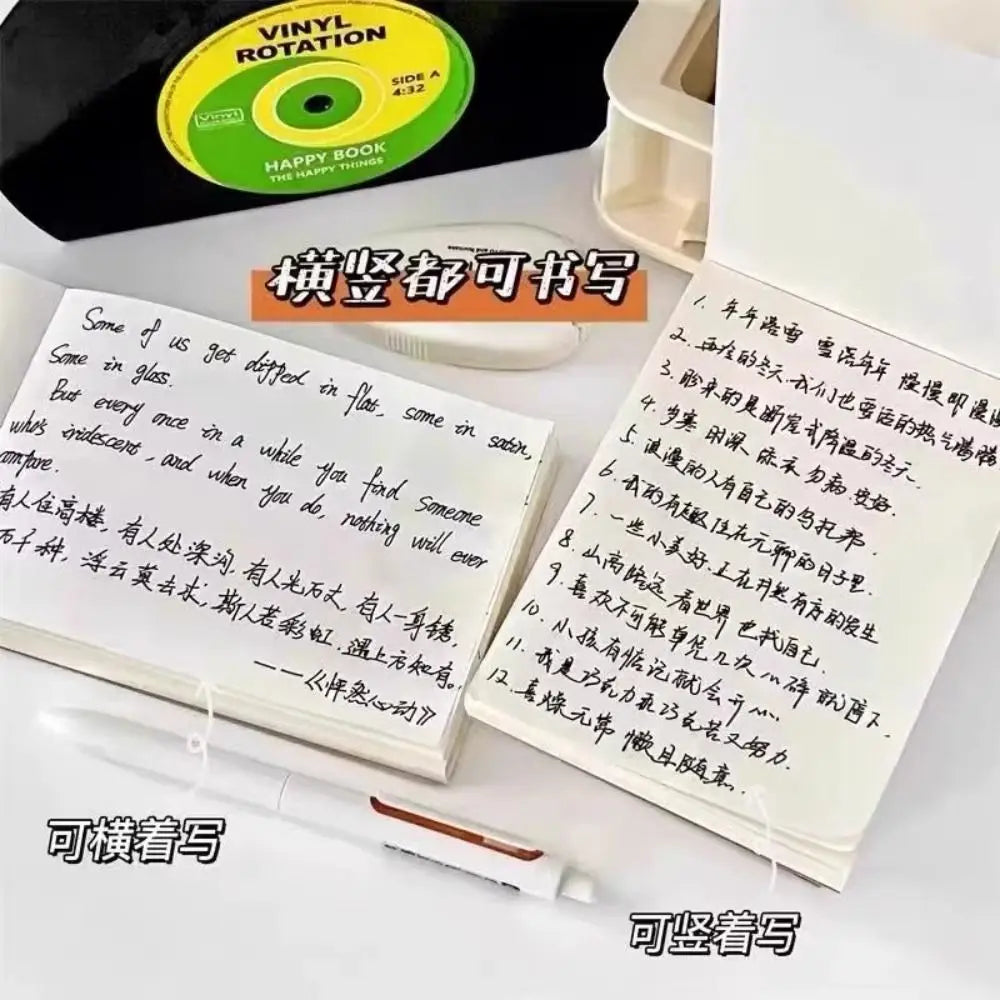 VINYL
ROTATION
SIDE A
4:32
Vinyl
HAPPY BOOK
THE HAPPY THINGS
横竖都可书写
Some of us get dipped in flat, some in satin,
Some in gloss.
But every once in a while you find someone
who's iridescent, and when you do, nothing will ever
compare.
有人住高楼，有人处深沟，有人光万丈，有人一身锈，
万千种，浮云莫去求，斯人若彩虹，遇上方知有。
——《怦然心动》
1. 年年落雪 雪落年年 慢慢即漫漫
2. 西在的冬天.我们也要活的热气腾腾
3. 盼来的是断崖式降温的冬天.
4. 岁寒 时深 添衣 勿病 安好.
5. 浪漫的人有自己的乌托邦.
6. 我的有趣住在无聊的日子里.
7. 一些小美好.正在井然有序的发生
8. 山高路远 看世界 也找自己.
9. 喜欢不可能单凭几次心碎就停下.
10. 小孩有惦记就会开心.
11. 我是巧克力 乖巧克苦又努力.
12. 喜燥无常 懒且随意.
可横着写
可竖着写